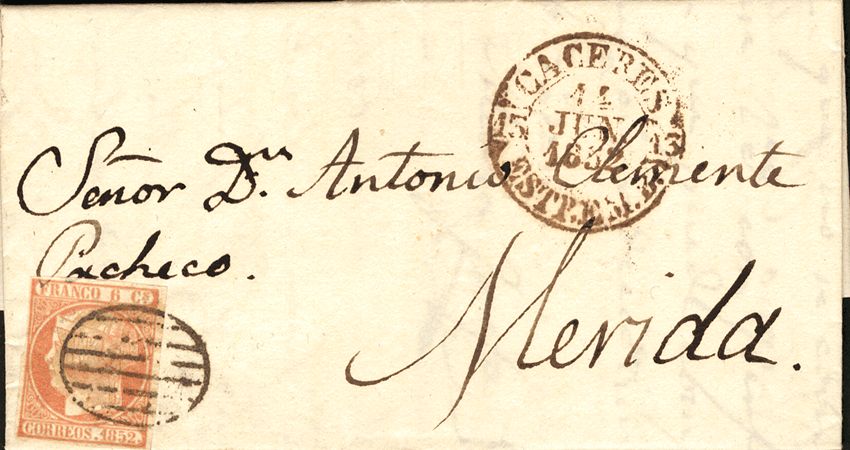 CACERES
14
JUN
1852
13
ESTREM.
Señor Dn. Antonio Clemente
Pacheco.
Merida.
FRANCO 6 Cs
CORREOS. 1852.